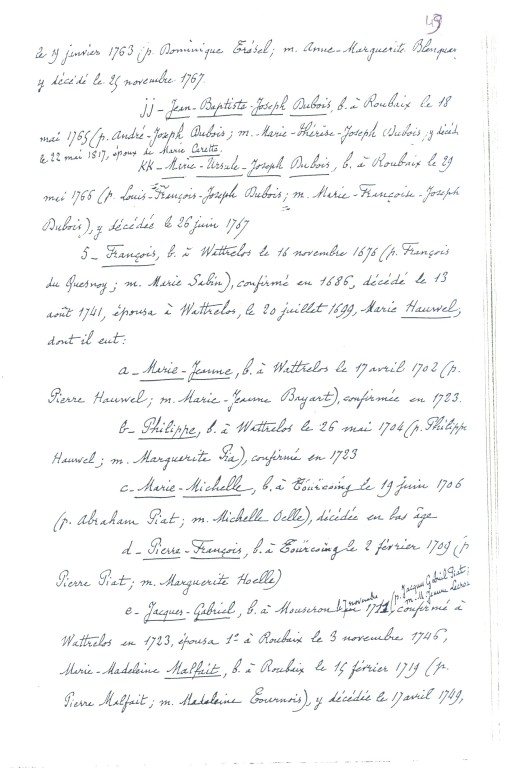 49
le 19 janvier 1763 (p. Dominique Trésel; m. Anne-Marguerite
y décédé le 25 novembre 1767.
jj - Jean-Baptiste-Joseph Dubois, b. à Roubaix le 18
mai 1765 (p. André-Joseph Dubois; m. Marie-Thérèse-Joseph Dubois, y décéd.
le 22 mai 1817, époux de Marie Carette.
KK - Marie-Ursule-Joseph Dubois, b. à Roubaix le 29
mai 1766 (p. Louis-François-Joseph Dubois; m. Marie-Françoise-Joseph
Dubois), y décédée le 26 juin 1767
5 - François, b. à Wattrelos le 16 novembre 1676 (p. François
du Quesnoy; m. Marie Sabin), confirmé en 1686, décédé le 13
août 1741, épousa à Wattrelos, le 20 juillet 1699, Marie Hauwel,
dont il eut:
a - Marie-Jeanne, b. à Wattrelos le 17 avril 1702 (p.
Pierre Hauwel; m. Marie-Jeanne Bayart), confirmée en 1723.
b - Philippe, b. à Wattrelos le 26 mai 1704 (p. Philippe
Hauwel; m. Marguerite Pia), confirmé en 1723
c - Marie-Michelle, b. à Tourcoing le 19 juin 1706
(p. Abraham Piat; m. Michelle Oelle), décédée en bas âge
d - Pierre-François, b. à Tourcoing le 2 février 1709 (p
Pierre Piat; m. Marguerite Hoelle)
e - Jacques-Gabriel, b. à Mouscron le 7 novembre 1711 (p. Jacques Gabriel Piat; m. M. Jeanne confirmé à
Wattrelos en 1723, épousa 1° à Roubaix le 3 novembre 1746,
Marie-Madeleine Malfait, b. à Roubaix le 15 février 1719 (p.
Pierre Malfait; m. Madeleine Tournois), y décédée le 17 avril 1749,